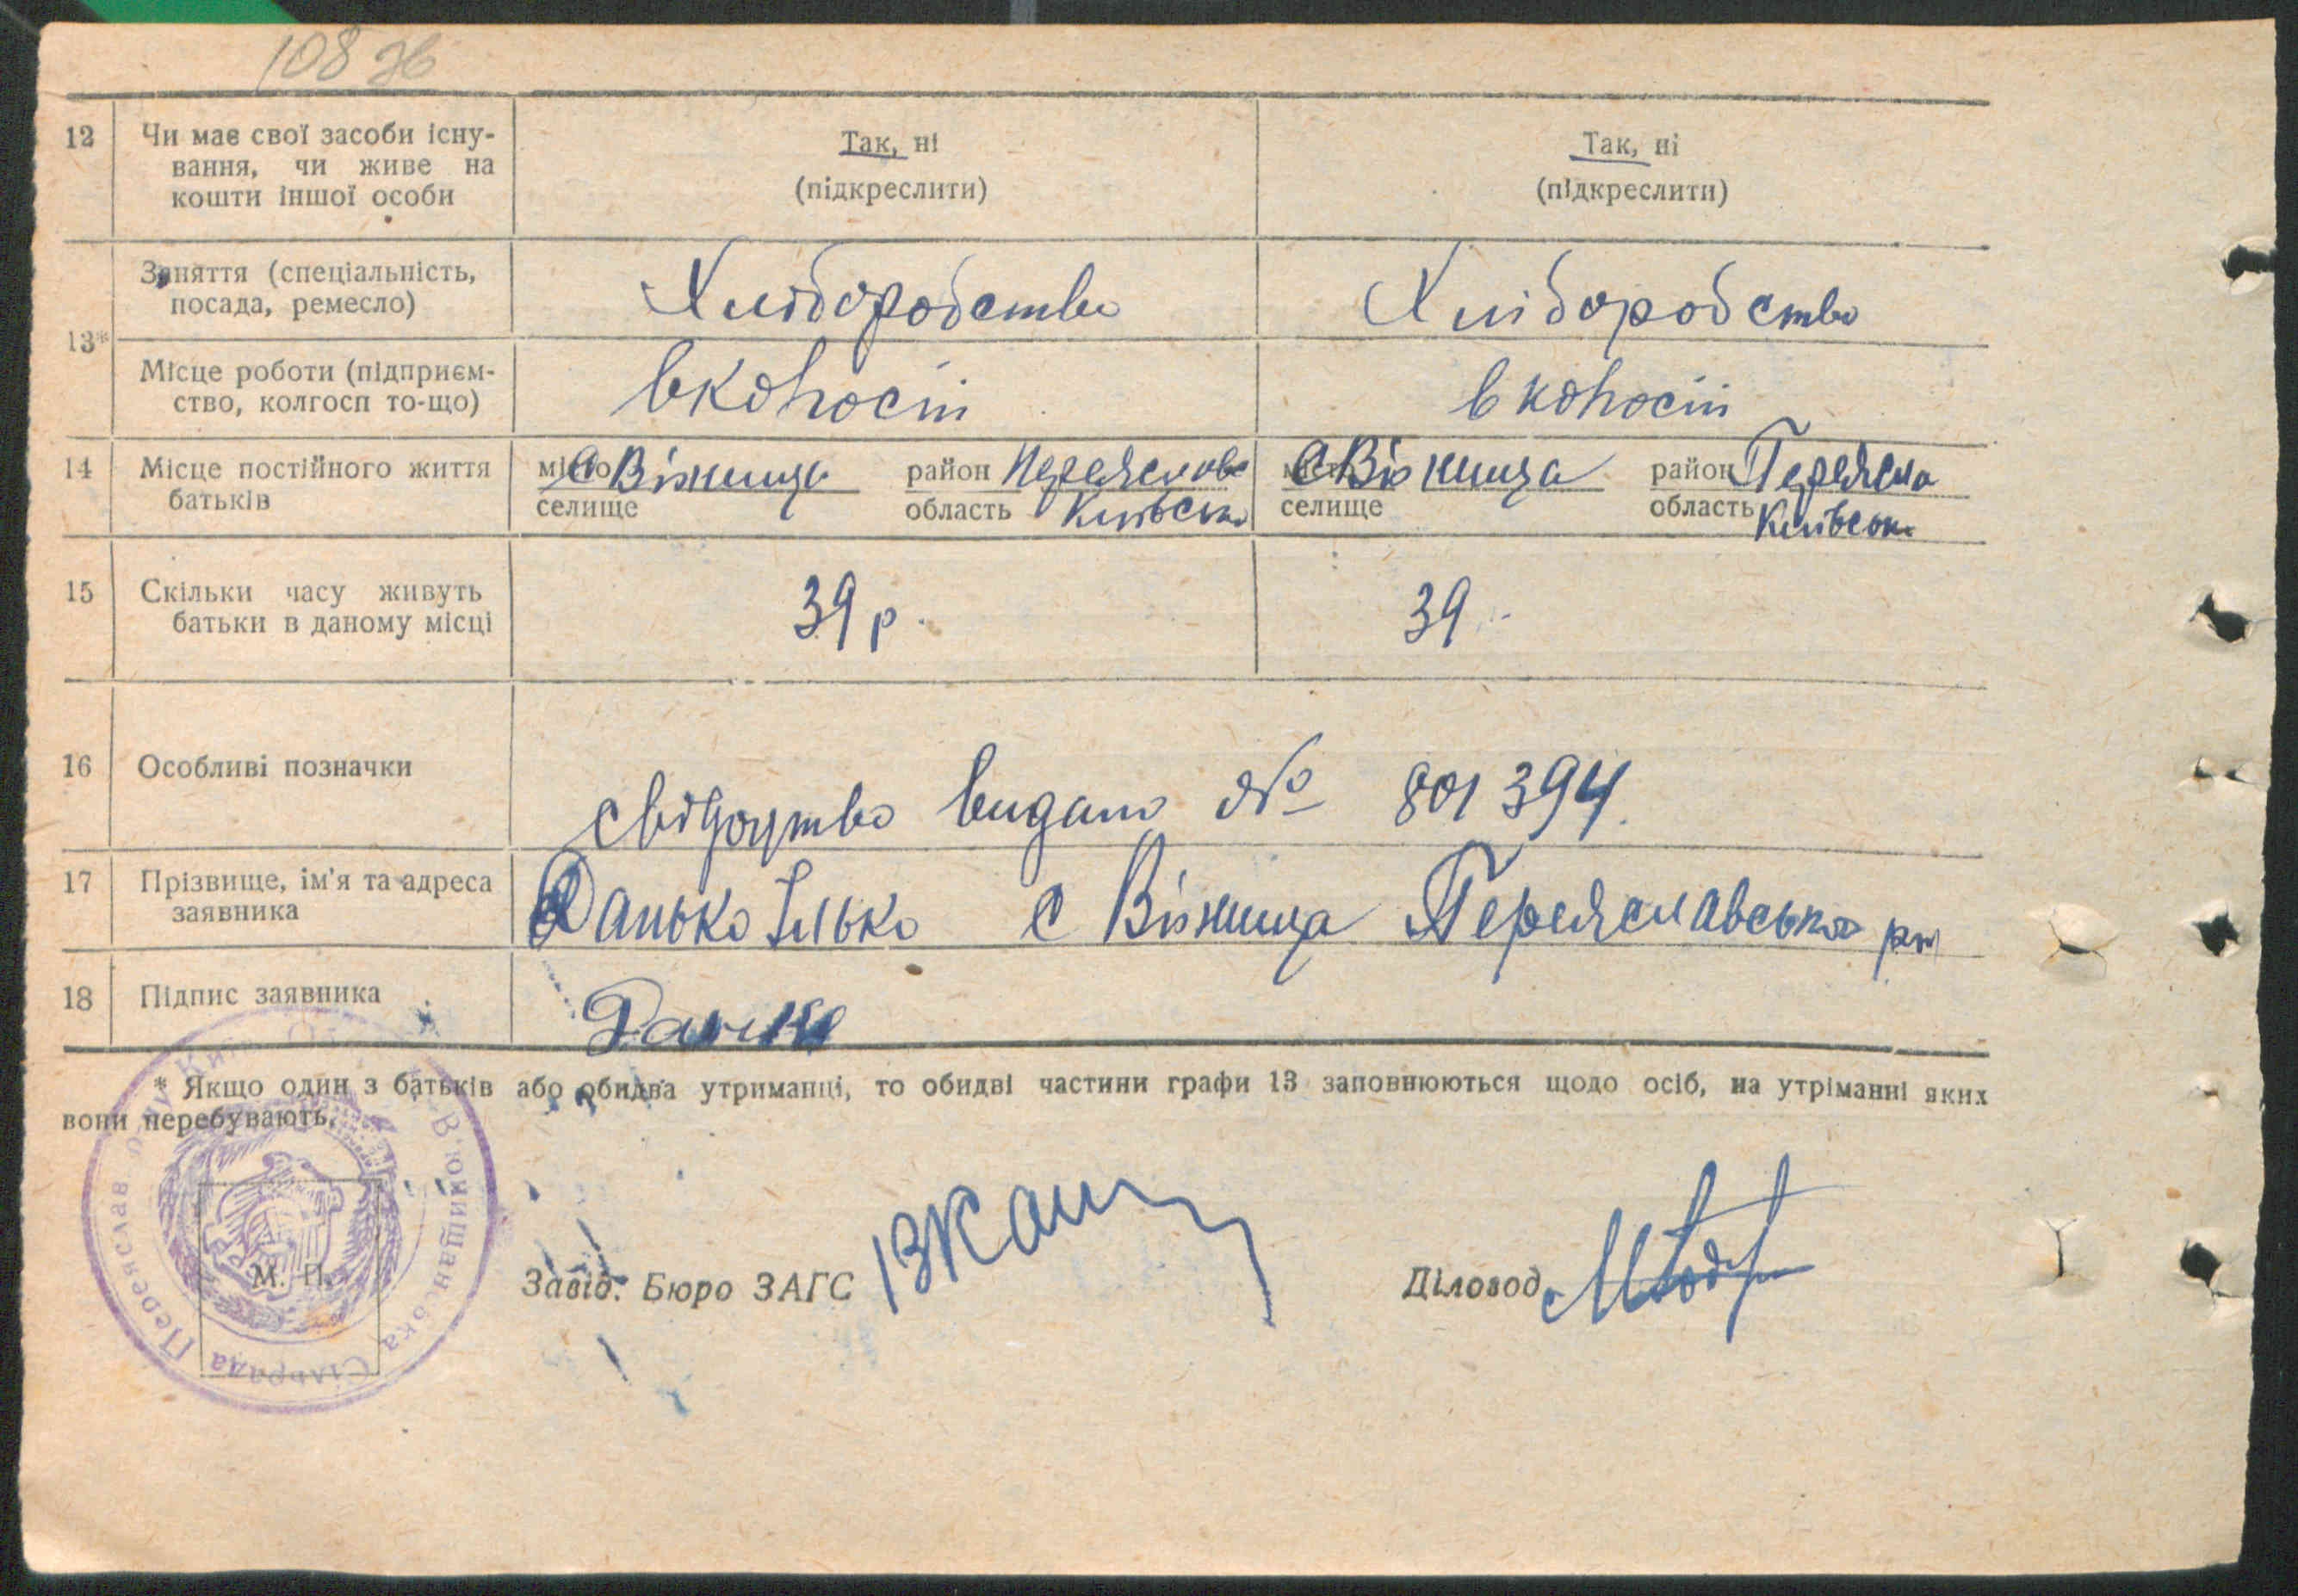 108 зв
12 Чи має свої засоби існу- Так, ні Так, ні
вання, чи живе на (підкреслити) (підкреслити)
кошти іншої особи
13* Заняття (спеціальність, Хліборобство Хліборобство
посада, ремесло)
Місце роботи (підприєм- в колгоспі в колгоспі
ство, колгосп то-що)
14 Місце постійного життя місто с Віюнища район Переяславс місто с Віюнища район Переясла
батьків селище область Київська селище область Київська
15 Скільки часу живуть 39 р. 39
батьки в даному місці
16 Особливі позначки свідоцтво видано № 801394.
17 Прізвище, ім'я та адреса Данько Ілько с Віюнища Переяславсько рн
заявника
18 Підпис заявника Данько
* Якщо один з батьків або обидва утриманці, то обидві частини графи 13 заповнюються щодо осіб, на утріманні яких
вони перебувають.
В'юнищанська Сільрада Переяслав
М. П.
Завід. Бюро ЗАГС Діловод